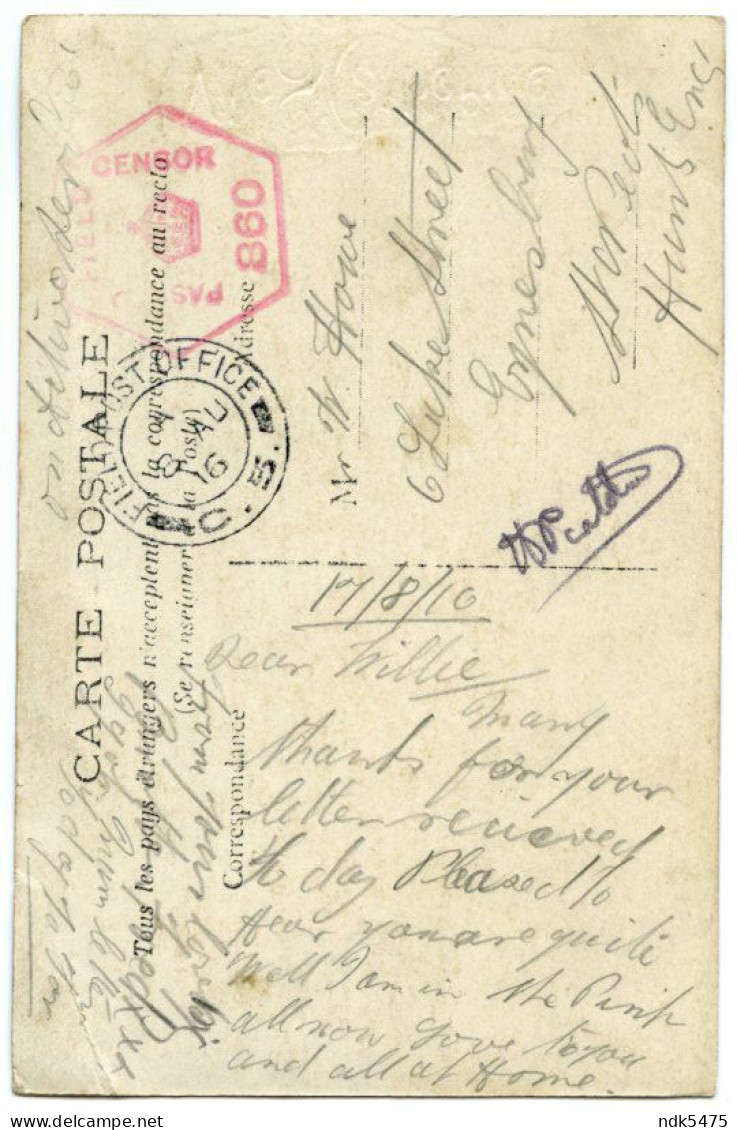 CARTE POSTALE
Tous les pays étrangers n'acceptent pas la correspondance au recto
(Se renseigner à la Poste)
Correspondance
Adresse
FIELD CENSOR
PAS
860
FIELD POST OFFICE
8 AU
16
C. 5.
Mr W. Howe
6 Luke Street
Eynesbury
Hunts Eng
17/8/16
Dear Willie
Many
thanks for your
letter recieved
to day Pleased to
Hear you are quite
Well I am in the Pink
all now Love to you
and all at Home.
from your loving
to day
ndk5475